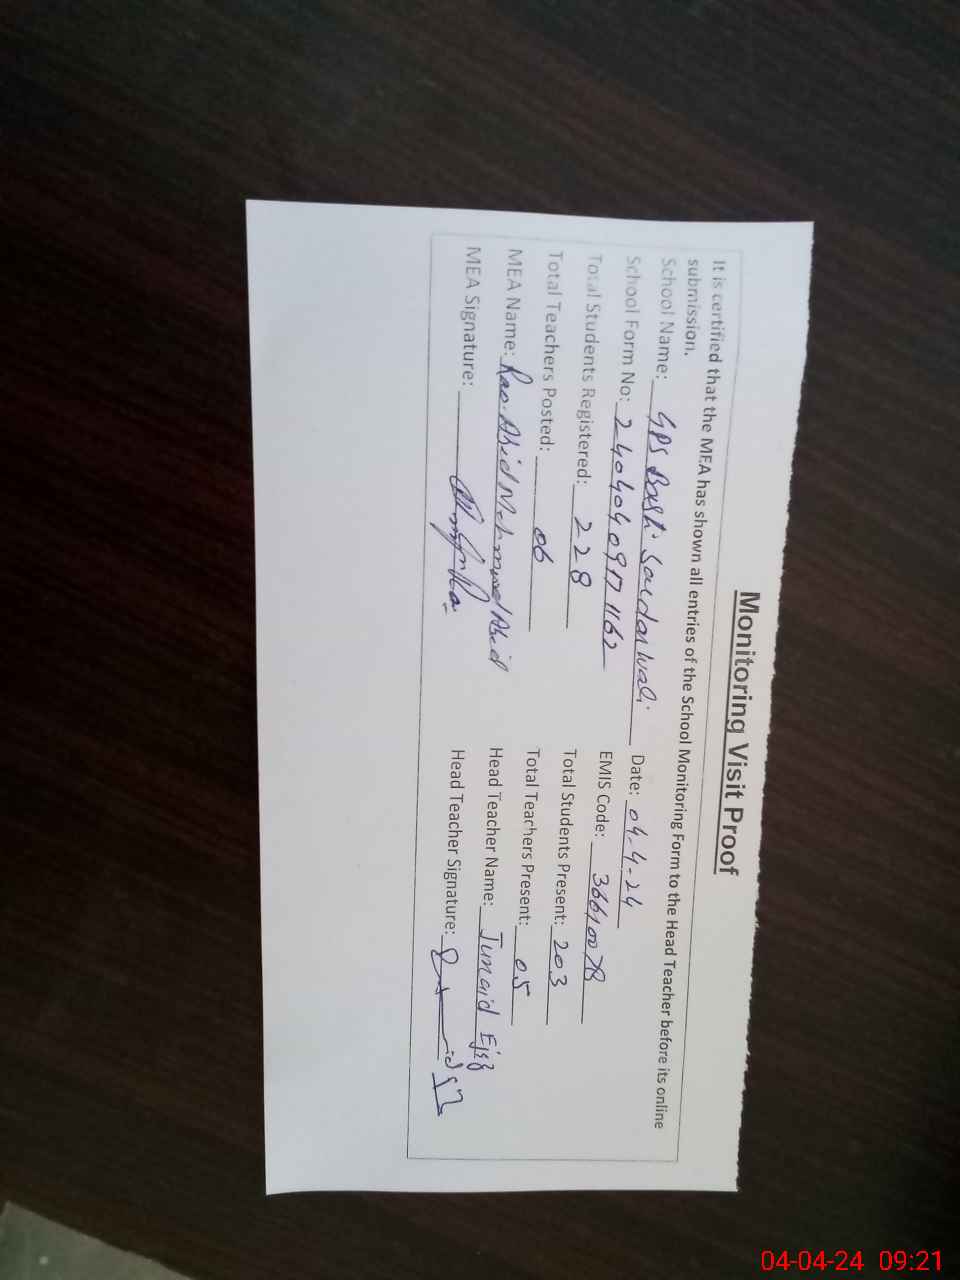 Monitoring Visit Proof
It is certified that the MEA has shown all entries of the School Monitoring Form to the Head Teacher before its online
submission.
School Name: GPS Basti Sardar Wali Date: 04-4-24
School Form No: 24040409171162 EMIS Code: 36610078
Total Students Registered: 228 Total Students Present: 203
Total Teachers Posted: 06 Total Teachers Present: 05
MEA Name: Rao. Abid Mehmood Abid Head Teacher Name: Junaid Ejaz
MEA Signature: Head Teacher Signature:
04-04-24 09:21